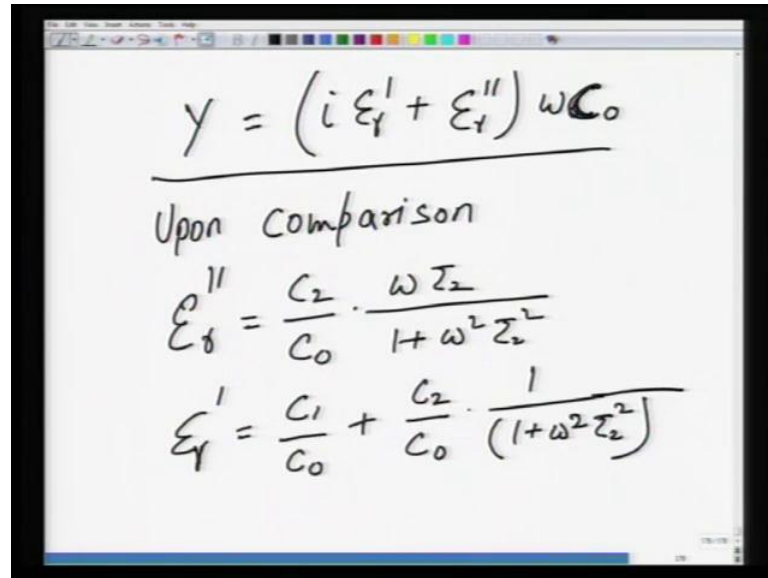 File Edit View Insert Actions Tools Help
Y = (i ε_r' + ε_r'') ω C₀
Upon comparison
ε_r'' = C₂/C₀ · ωτ₂/(1+ω²τ₂²)
ε_r' = C₁/C₀ + C₂/C₀ · 1/(1+ω²τ₂²)